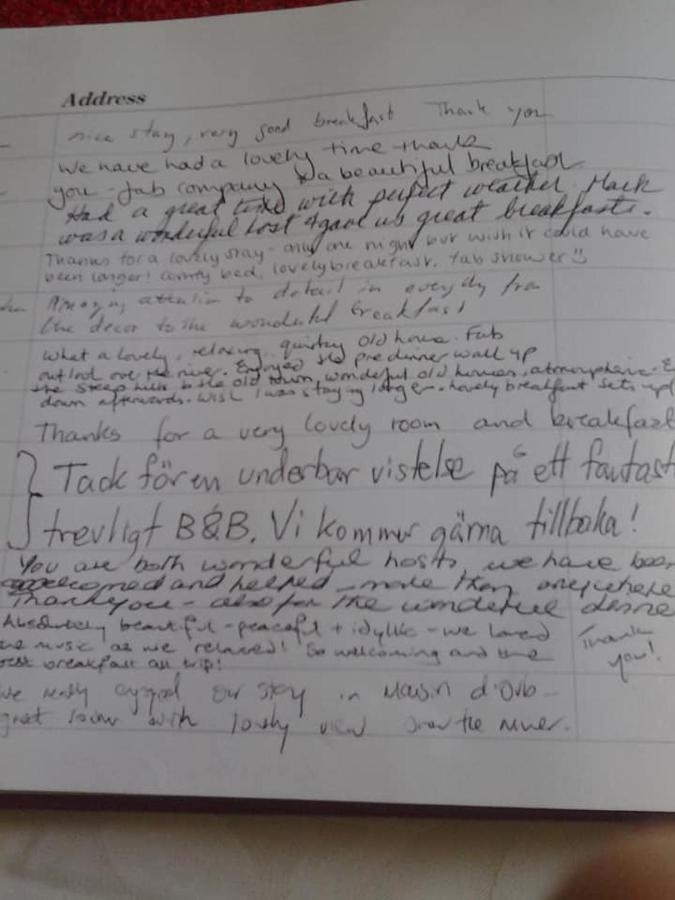 Address
nice stay, very good breakfast Thank you
We have had a lovely time thank
you - fab company & a beautiful breakfast
Had a great time with perfect weather. Mark
was a wonderful host & gave us great breakfasts.
Thanks for a lovely stay - only one night but wish it could have
been longer! comfy bed, lovely breakfast, fab shower
Amazing attention to detail in everythg from
the decor to the wonderful breakfast
What a lovely, relaxing, quirky old house. Fab
outlook over the river. Enjoyed the predinner walk up
the steep hill to the old town, wonderful old houses, atmosphere. &
down afterwards. Wish I was staying longer. Lovely breakfast sets up
Thanks for a very lovely room and breakfast
Tack för en underbar vistelse på ett fantast
trevligt B&B. Vi kommer gärna tillbaka!
You are both wonderful hosts, we have been
welcomed and helped - more than anywhere
Thankyou - also for the wonderful dinne
Absolutely beautiful - peaceful + idyllic - we loved
the music as we relaxed! So welcoming and the
best breakfast all trip!
Thank
you!
We really enjoyed our stay in Maison d'Orb -
great room with lovely view over the river.